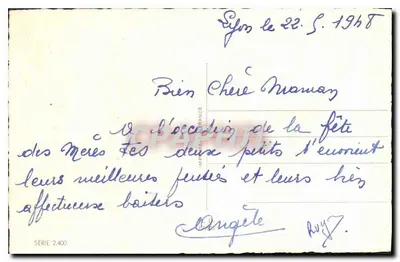 Lyon le 22. 5. 1948
Bien Chère Maman
A l'occasion de la fête
des Mères tes deux petits t'envoient
leurs meilleures pensées et leurs bien
affectueux baisers
Angèle
SERIE 2.400